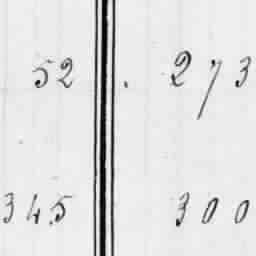 52 273
345 300